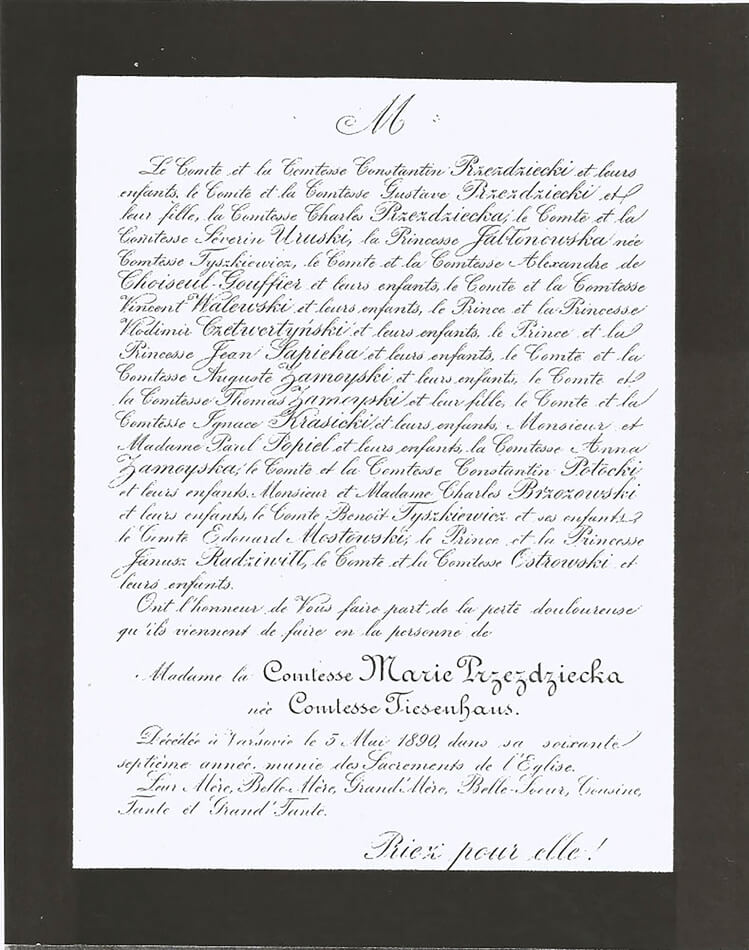 M
Le Comte et la Comtesse Constantin Przezdziecki et leurs
enfants, le Comte et la Comtesse Gustave Przezdziecki et
leur fille, la Comtesse Charles Przezdziecka, le Comte et la
Comtesse Séverin Uruski, la Princesse Jabłonowska née
Comtesse Tyszkiewicz, le Comte et la Comtesse Alexandre de
Choiseul-Gouffier et leurs enfants, le Comte et la Comtesse
Vincent Walewski et leurs enfants, le Prince et la Princesse
Vlodimir Czetwertyński et leurs enfants, le Prince et la
Princesse Jean Sapieha et leurs enfants, le Comte et la
Comtesse Auguste Zamoyski et leurs enfants, le Comte et
la Comtesse Thomas Zamoyski et leur fille, le Comte et la
Comtesse Ignace Krasicki et leurs enfants, Monsieur et
Madame Paul Popiel et leurs enfants, la Comtesse Anna
Zamoyska, le Comte et la Comtesse Constantin Potocki
et leurs enfants. Monsieur et Madame Charles Brzozowski
et leurs enfants, le Comte Benoit Tyszkiewicz et ses enfants
le Comte Edouard Mostowski, le Prince et la Princesse
Janusz Radziwiłł, le Comte et la Comtesse Ostrowski et
leurs enfants.
Ont l'honneur de Vous faire part de la perte douloureuse
qu'ils viennent de faire en la personne de
Madame la Comtesse Marie Przezdziecka
née Comtesse Tiesenhaus.
Décédée à Varsovie le 5 Mai 1890, dans sa soixante
septième année, munie des Sacrements de l'Eglise.
Leur Mère, Belle-Mère, Grand'Mère, Belle-Soeur, Cousine,
Tante et Grand'Tante.
Priez pour elle!